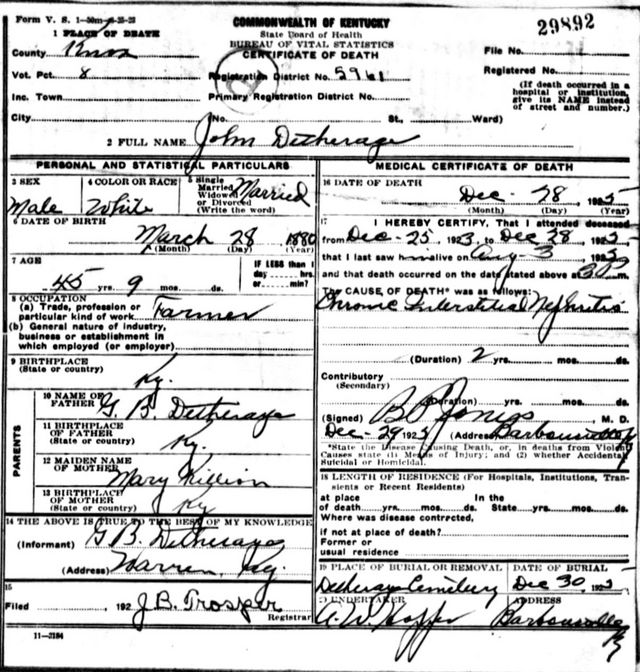 Form V. S. 1-50m-8-25-23
COMMONWEALTH OF KENTUCKY
State Board of Health
BUREAU OF VITAL STATISTICS
CERTIFICATE OF DEATH
29892
1 PLACE OF DEATH
County Knox
File No.
Vot. Pct. 8
Registration District No. 5961
Registered No.
Inc. Town
Primary Registration District No.
(If death occurred in a hospital or institution, give its NAME instead of street and number.)
City (No. St., Ward)
2 FULL NAME John Detherage
PERSONAL AND STATISTICAL PARTICULARS
3 SEX Male
4 COLOR OR RACE White
5 Single Married Widowed or Divorced (Write the word) Married
6 DATE OF BIRTH
March 28 1880
(Month) (Day) (Year)
7 AGE
45 yrs. 9 mos. ds.
IF LESS than 1 day hrs. or min?
8 OCCUPATION
(a) Trade, profession or particular kind of work Farmer
(b) General nature of industry, business or establishment in which employed (or employer)
9 BIRTHPLACE
(State or country) Ky.
PARENTS
10 NAME OF FATHER G. B. Detherage
11 BIRTHPLACE OF FATHER
(State or country) Ky.
12 MAIDEN NAME OF MOTHER Mary Million
13 BIRTHPLACE OF MOTHER
(State or country) Ky
14 THE ABOVE IS TRUE TO THE BEST OF MY KNOWLEDGE
(Informant) G. B. Detherage
(Address) Warren, Ky.
15
Filed 192 J. B. Trosper
Registrar
11-3184
MEDICAL CERTIFICATE OF DEATH
16 DATE OF DEATH
Dec- 28 1925
(Month) (Day) (Year)
17 I HEREBY CERTIFY, That I attended deceased
from Dec-25, 1923, to Dec 28, 1925
that I last saw him alive on Aug-3 1925
and that death occurred on the date stated above at
The CAUSE OF DEATH* was as follows:
Chronic Interstitial Nephritis
(Duration) 2 yrs. mos. ds.
Contributory
(Secondary)
(Duration) yrs. mos. ds.
(Signed) B P Jones M. D.
Dec-29 1925 (Address) Barbourville Ky
*State the Disease Causing Death, or, in deaths from Violent Causes state (1) Means of Injury; and (2) whether Accidental, Suicidal or Homicidal.
18 LENGTH OF RESIDENCE (For Hospitals, Institutions, Transients or Recent Residents)
at place In the
of death yrs. mos. ds. State yrs. mos. ds.
Where was disease contracted,
if not at place of death?
Former or
usual residence
19 PLACE OF BURIAL OR REMOVAL DATE OF BURIAL
Detherage Cemetery Dec 30, 1925
20 UNDERTAKER ADDRESS
A. W. Hopper Barbourville Ky